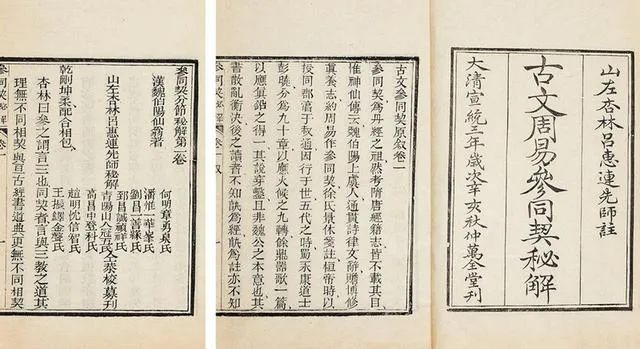 山左杏林呂惠連先師註
古文周易參同契秘解
大清宣統三年歲次辛亥秋仲萬全堂刊
古文參同契原敘卷一
參同契為丹經之祖然考隋唐經籍志皆不載其目
惟神仙傳云魏伯陽上虞人通貫詩律文辭贍博修
真養志約周易作參同契徐氏景休箋註桓帝時以
授同郡淳于叔通因行于世五代之時蜀永康道士
彭曉分為九十章以應火候之九轉餘鼎器歌一篇
以應真鉛之得一其說穿鑿且非魏公之本意也其
書散亂衡決後之讀者不知孰為經孰為註亦不知
參同契秘解 卷一 敘
參同契分節秘解第二卷
漢魏伯陽仙翁著
山左杏林呂惠連先師秘解
何明章勇泉氏
潘一華峯氏
劉昌一善氏
郅昌誠禎祥氏
青陽山人冠五氏全叅校募刊
高昌中登科氏
趙明沈信智氏
王振鐸金聲氏
乾剛坤柔配合相包
杏林曰參之謂言三也同契者言與三教之道其
理無不同相契與亘古經書道典更無不同相契
參同契秘解